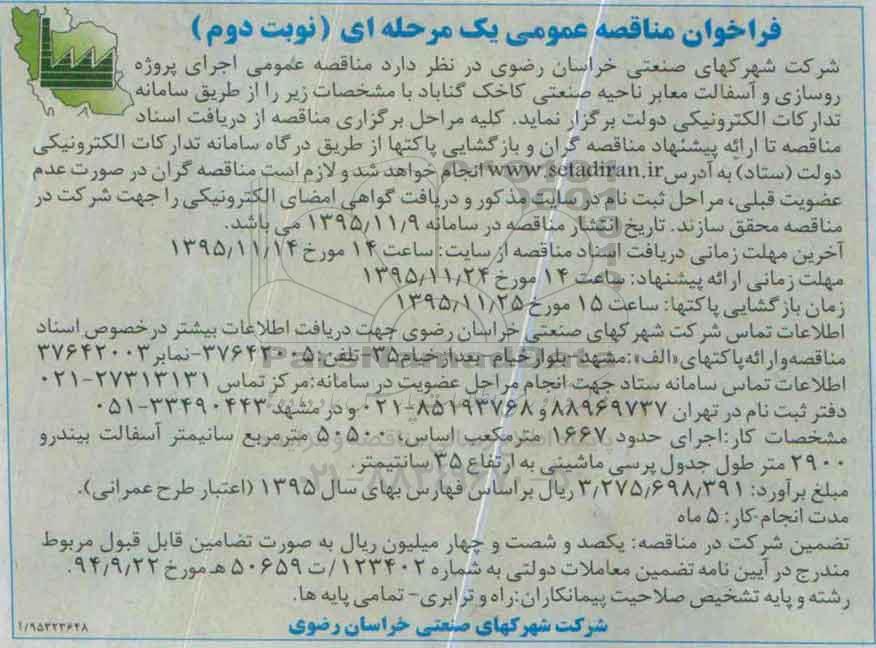 فراخوان مناقصه عمومی یک مرحله ای (نوبت دوم)
شرکت شهرکهای صنعتی خراسان رضوی در نظر دارد مناقصه عمومی اجرای پروژه
روسازی و آسفالت معابر ناحیه صنعتی کاخک گناباد با مشخصات زیر را از طریق سامانه
تدارکات الکترونیکی دولت برگزار نماید. کلیه مراحل برگزاری مناقصه از دریافت اسناد
مناقصه تا ارائه پیشنهاد مناقصه گران و بازگشایی پاکتها از طریق درگاه سامانه تدارکات الکترونیکی
دولت (ستاد) به آدرس www.setadiran.ir انجام خواهد شد و لازم است مناقصه گران در صورت عدم
عضویت قبلی، مراحل ثبت نام در سایت مذکور و دریافت گواهی امضای الکترونیکی را جهت شرکت در
مناقصه محقق سازند. تاریخ انتشار مناقصه در سامانه ۱۳۹۵/۱۱/۹ می باشد.
آخرین مهلت زمانی دریافت اسناد مناقصه از سایت: ساعت ۱۴ مورخ ۱۳۹۵/۱۱/۱۴
مهلت زمانی ارائه پیشنهاد: ساعت ۱۴ مورخ ۱۳۹۵/۱۱/۲۴
زمان بازگشایی پاکتها: ساعت ۱۵ مورخ ۱۳۹۵/۱۱/۲۵
اطلاعات تماس شرکت شهرکهای صنعتی خراسان رضوی جهت دریافت اطلاعات بیشتر درخصوص اسناد
مناقصه وارائه پاکتهای «الف»: مشهد-بلوارخیام-بعدازخیام۳۵-تلفن:۳۷۶۴۲۰۰۵-نمابر ۳۷۶۴۲۰۰۳
اطلاعات تماس سامانه ستاد جهت انجام مراحل عضویت در سامانه: مرکز تماس ۲۷۳۱۳۱۳۱-۰۲۱
دفتر ثبت نام در تهران ۸۸۹۶۹۷۳۷ و ۸۵۱۹۳۷۶۸-۰۲۱ و در مشهد ۳۳۴۹۰۴۴۳-۰۵۱
مشخصات کار: اجرای حدود ۱۶۶۷ مترمکعب اساس، ۵۰۵۰۰ مترمربع سانیمتر آسفالت بیندرو
۲۹۰۰ متر طول جدول پرسی ماشینی به ارتفاع ۳۵ سانتیمتر.
مبلغ برآورد: ۳,۲۷۵,۶۹۸,۳۹۱ ریال براساس فهارس بهای سال ۱۳۹۵ (اعتبار طرح عمرانی).
مدت انجام کار: ۵ ماه
تضمین شرکت در مناقصه: یکصد و شصت و چهار میلیون ریال به صورت تضامین قابل قبول مربوط
مندرج در آیین نامه تضمین معاملات دولتی به شماره ۱۲۳۴۰۲/ت ۵۰۶۵۹ هـ مورخ ۹۴/۹/۲۲.
رشته و پایه تشخیص صلاحیت پیمانکاران: راه و ترابری- تمامی پایه ها.
شرکت شهرکهای صنعتی خراسان رضوی
۱/۹۵۲۲۳۶۴۸